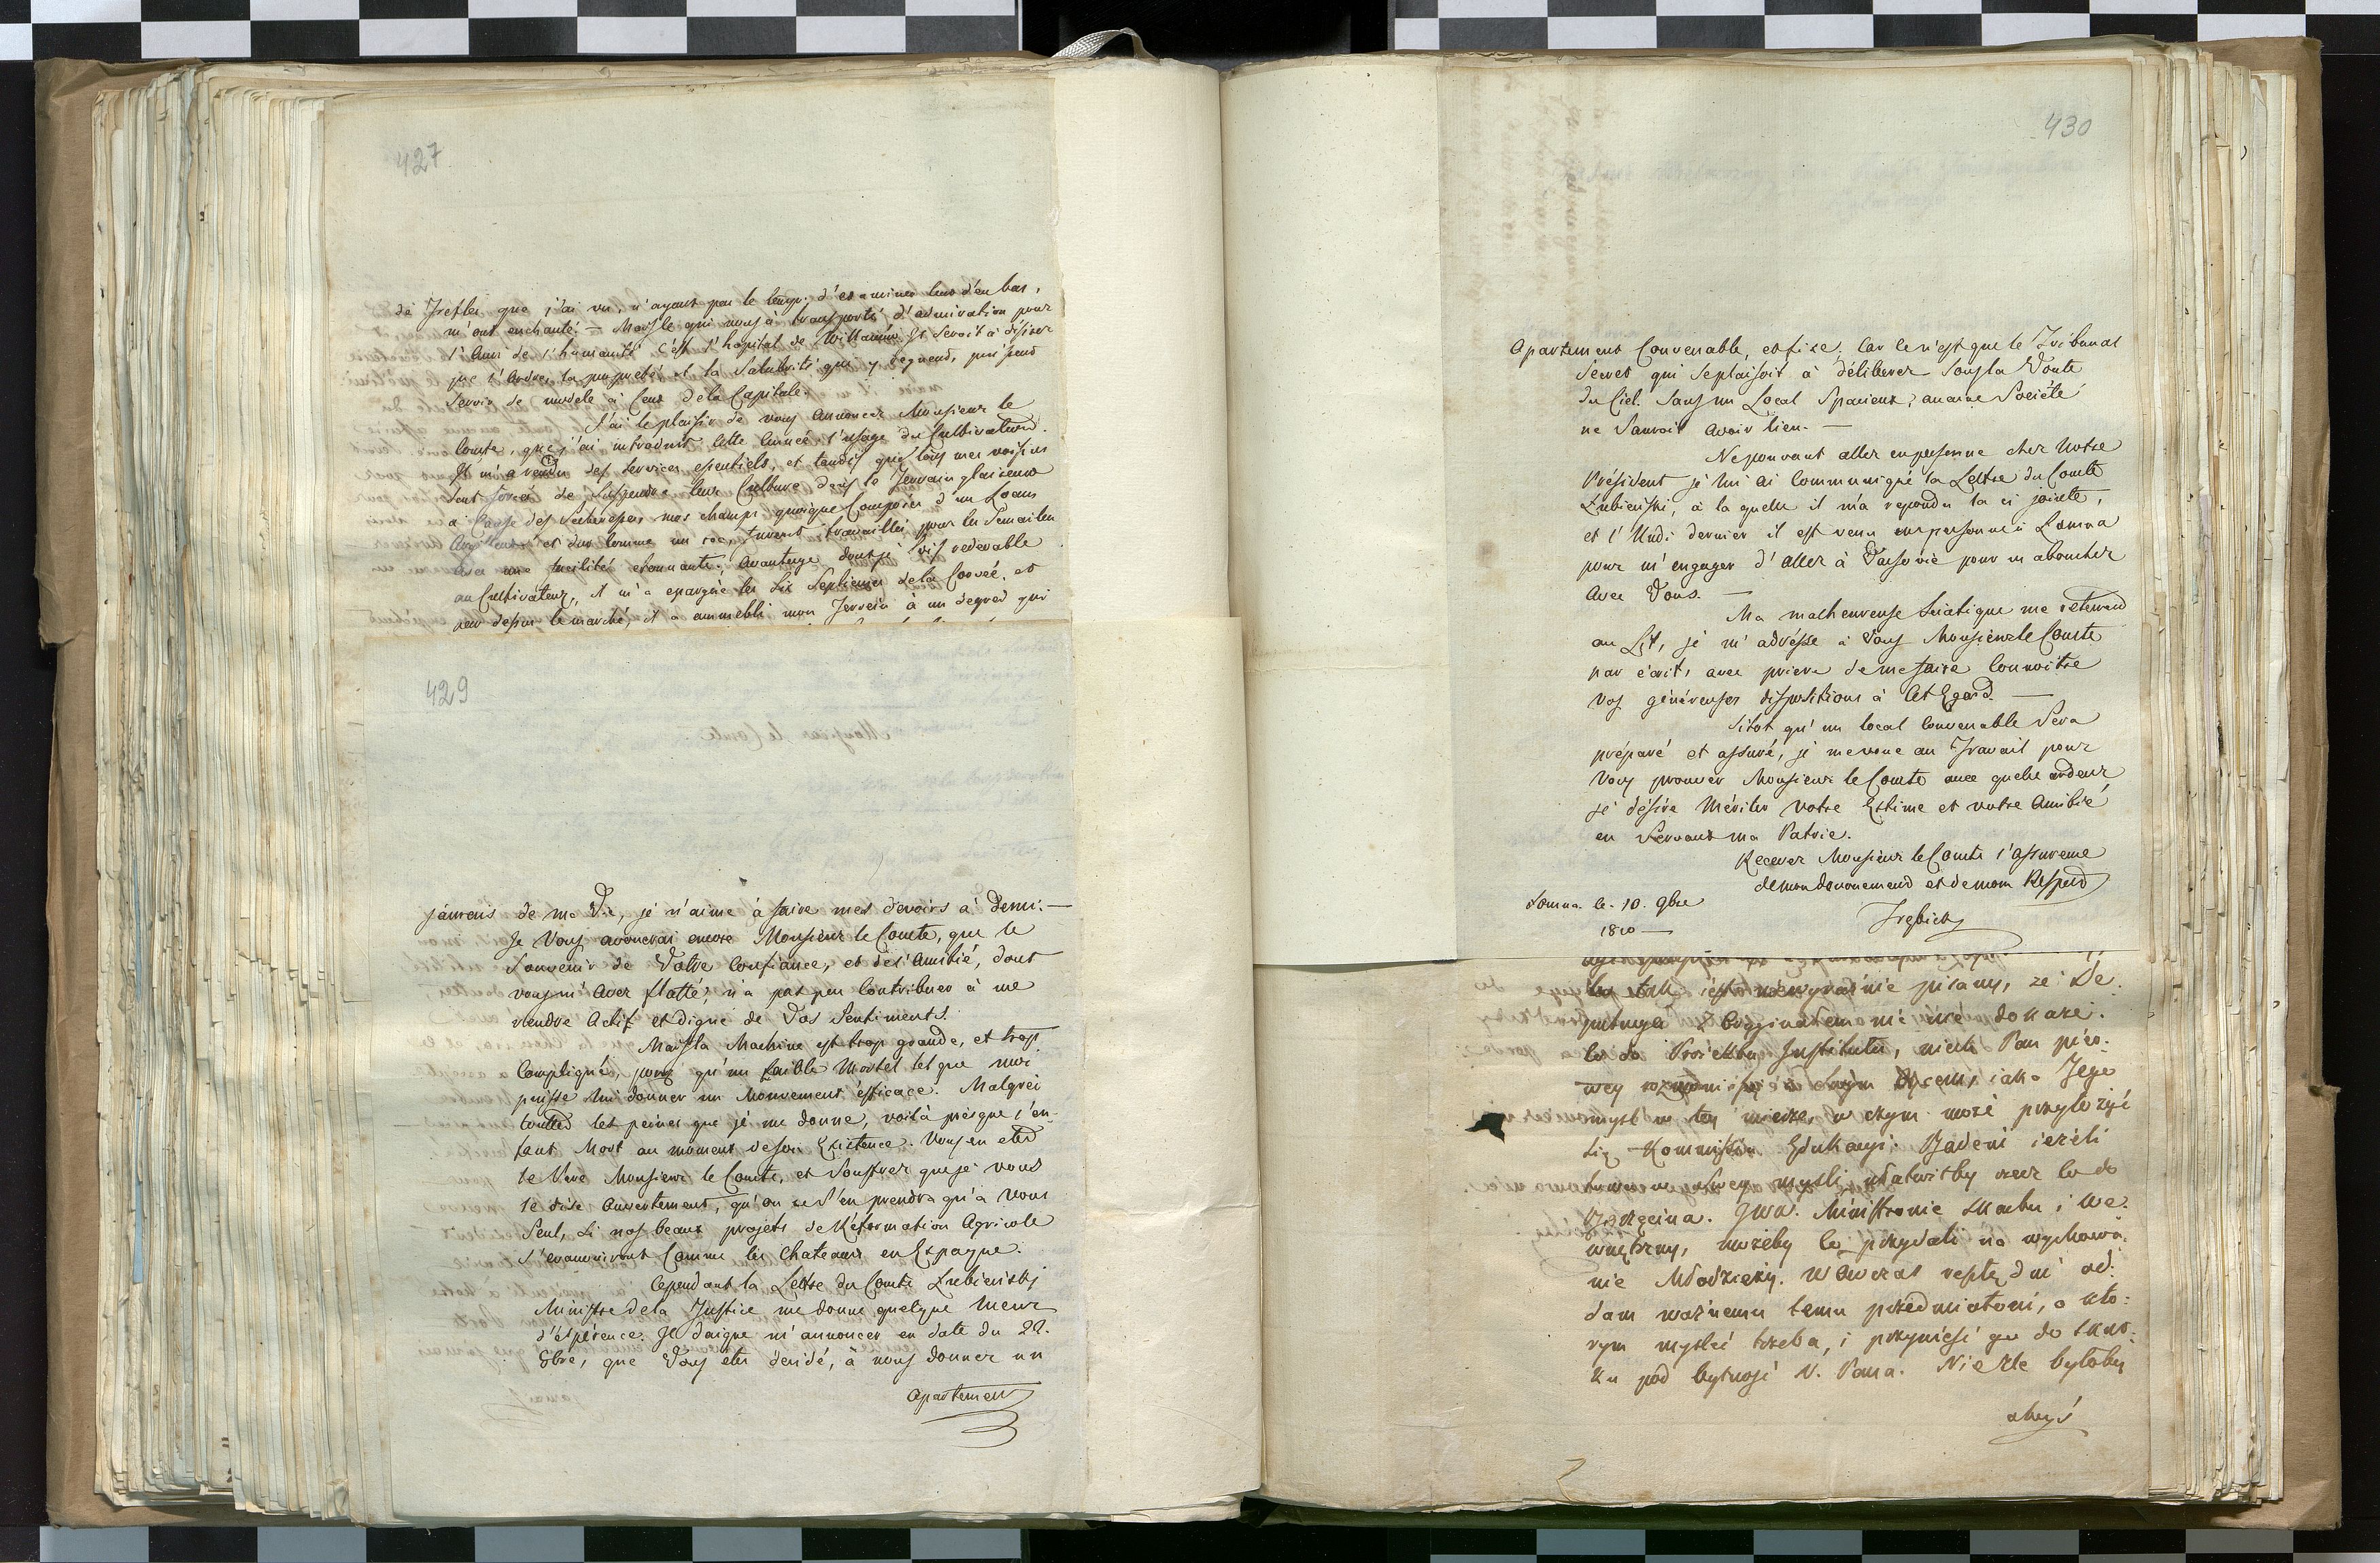 427
de Trefles que j'ai vu, n'ayant pas le temps d'examiner ceux d'en bas,
m'ont enchanté. — Mais ce qui nous à transporté d'admiration pour
l'Ami de l'humanité c'est l'hopital de Il Seroit à désirer
que l'ordre, la propreté et la Salubrité qui y regnend, puissend
Servir de modele à Ceux de la Capitale.
J'ai le plaisir de vous annoncer Monsieur le
Comte, que j'ai introduit cette année l'usage du Cultivateur.
Il m'a rendu des Services essentiels, et tandis que tous mes voisins
Sont forcés de Suspendre leur Culture dans le Terrain glaiseux
a Cause des Secheresses, mes champs quoique Composés d'un Loam
et dur Comme un roc, furent travaillés pour les Semailles
avec une facilité etonnante; Avantage dont je suis redevable
au Cultivateur, il m'a epargné les Six Septiemes de la Corvée, et
par dessus le marché, il a ammebli mon Terrein à un degred qui
429
jamais de ma Vie, je n'aime à faire mes devoirs à Demi. —
Je Vous avouerai encore Monsieur le Comte, que le
Souvenir de Votre Confiance, et de l'Amitié, dont
vous m'avez flatté, n'a pas peu Contribuer à me
rendre Actif et digne de Vos Sentiments.
Mais la Machine est trop grande, et trop
Compliqué, pour qu'un faible Mortel tel que moi
puisse lui donner un Mouvement éfficace. Malgrei
touttes les peines que je me donne, voilà présque l'en-
fant Mort au moment de son Existence. Vous en etes
le Pere Monsieur le Comte, et Souffrez que je vous
le dise ouvertement, qu'on ne S'en prendra qu'a Vous
Seul, Si nos beaux projets de Réformation Agricole
S'evanouiront Comme les Chateaux en Espagne.
Cependant la Lettre du Comte Łubieński
Ministre de la Justice me donne quelque lueur
d'éspérence. Il daigne m'annoncer en date du 22.
8bre, que Vous etes decidé, à nous donner un
Apartement
430
Apartement Convenable, et fixe. Car ce n'est que le Tribunal
Secret qui se plaisoit à déliberer Sous la Voute
du Ciel. Sans un Local Spacieux, aucune Société
ne Sauroit avoir lieu. —
Ne pouvant aller en personne chez Notre
Président je lui ai Communiqué la Lettre du Comte
Łubieński, à la quelle il m'a repondu la ci jointe,
et l'Undi dernier il est venu en personne à Łomna
pour m'engager d'aller à Varsovie pour m'aboucher
Avec Vous. —
Ma malheureuse Sciatique me retenend
au Lit, je m'adrésse à Vous Monsieur le Comte
par écrit, avec priere de me faire Connoitre
Vos généreuses dispositions à Cet Egard. —
Sitot qu'un local Convenable Sera
préparé et assuré, je me voue au Travail pour
Vous prouver Monsieur le Comte avec quelle ardeur
je désire Mériter votre Estime et votre Amitié
en Servant ma Patrie.
Recevez Monsieur le Comte l'assurence
de mon devouement et de mon Respect
Łomna. le. 10. 9bre
1810 —
Trębicki
tak iest niewyraźnie pisany, że De-
putacya z Oryginałem nic nie dokaże.
Co do Proiektu Instytutu, niech Pan pier-
wey rozmówi się z Swym Oycem, iaka Jego
myśl w tey mierze, w czym może przyłożyć
się Kommissya Edukacyi. Badeni ieżeli
myśli, ułatwiłby rzecz co do
Brzęcina. JWW. Ministrowie Skarbu i We-
wnętrzny, możeby co przydali na wychowa-
nie Młodzieży. Wówczas resztę dni od-
dam ważnemu temu przedmiotowi, o któ-
rym myśleć trzeba, i przynieść go do skut-
ku pod bytność N. Pana. Nie źle byłoby
abyś